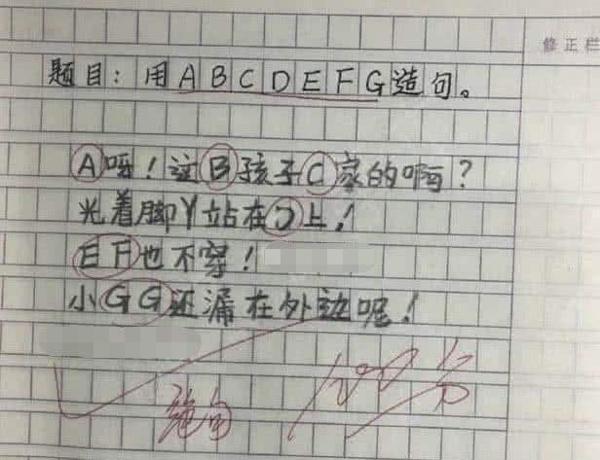 修正栏
题目：用ABCDEFG造句。
A呀！这B孩子C家的啊？
光着脚丫站在D上！
EF也不穿！
小GG还漏在外边呢！
绝句
100分